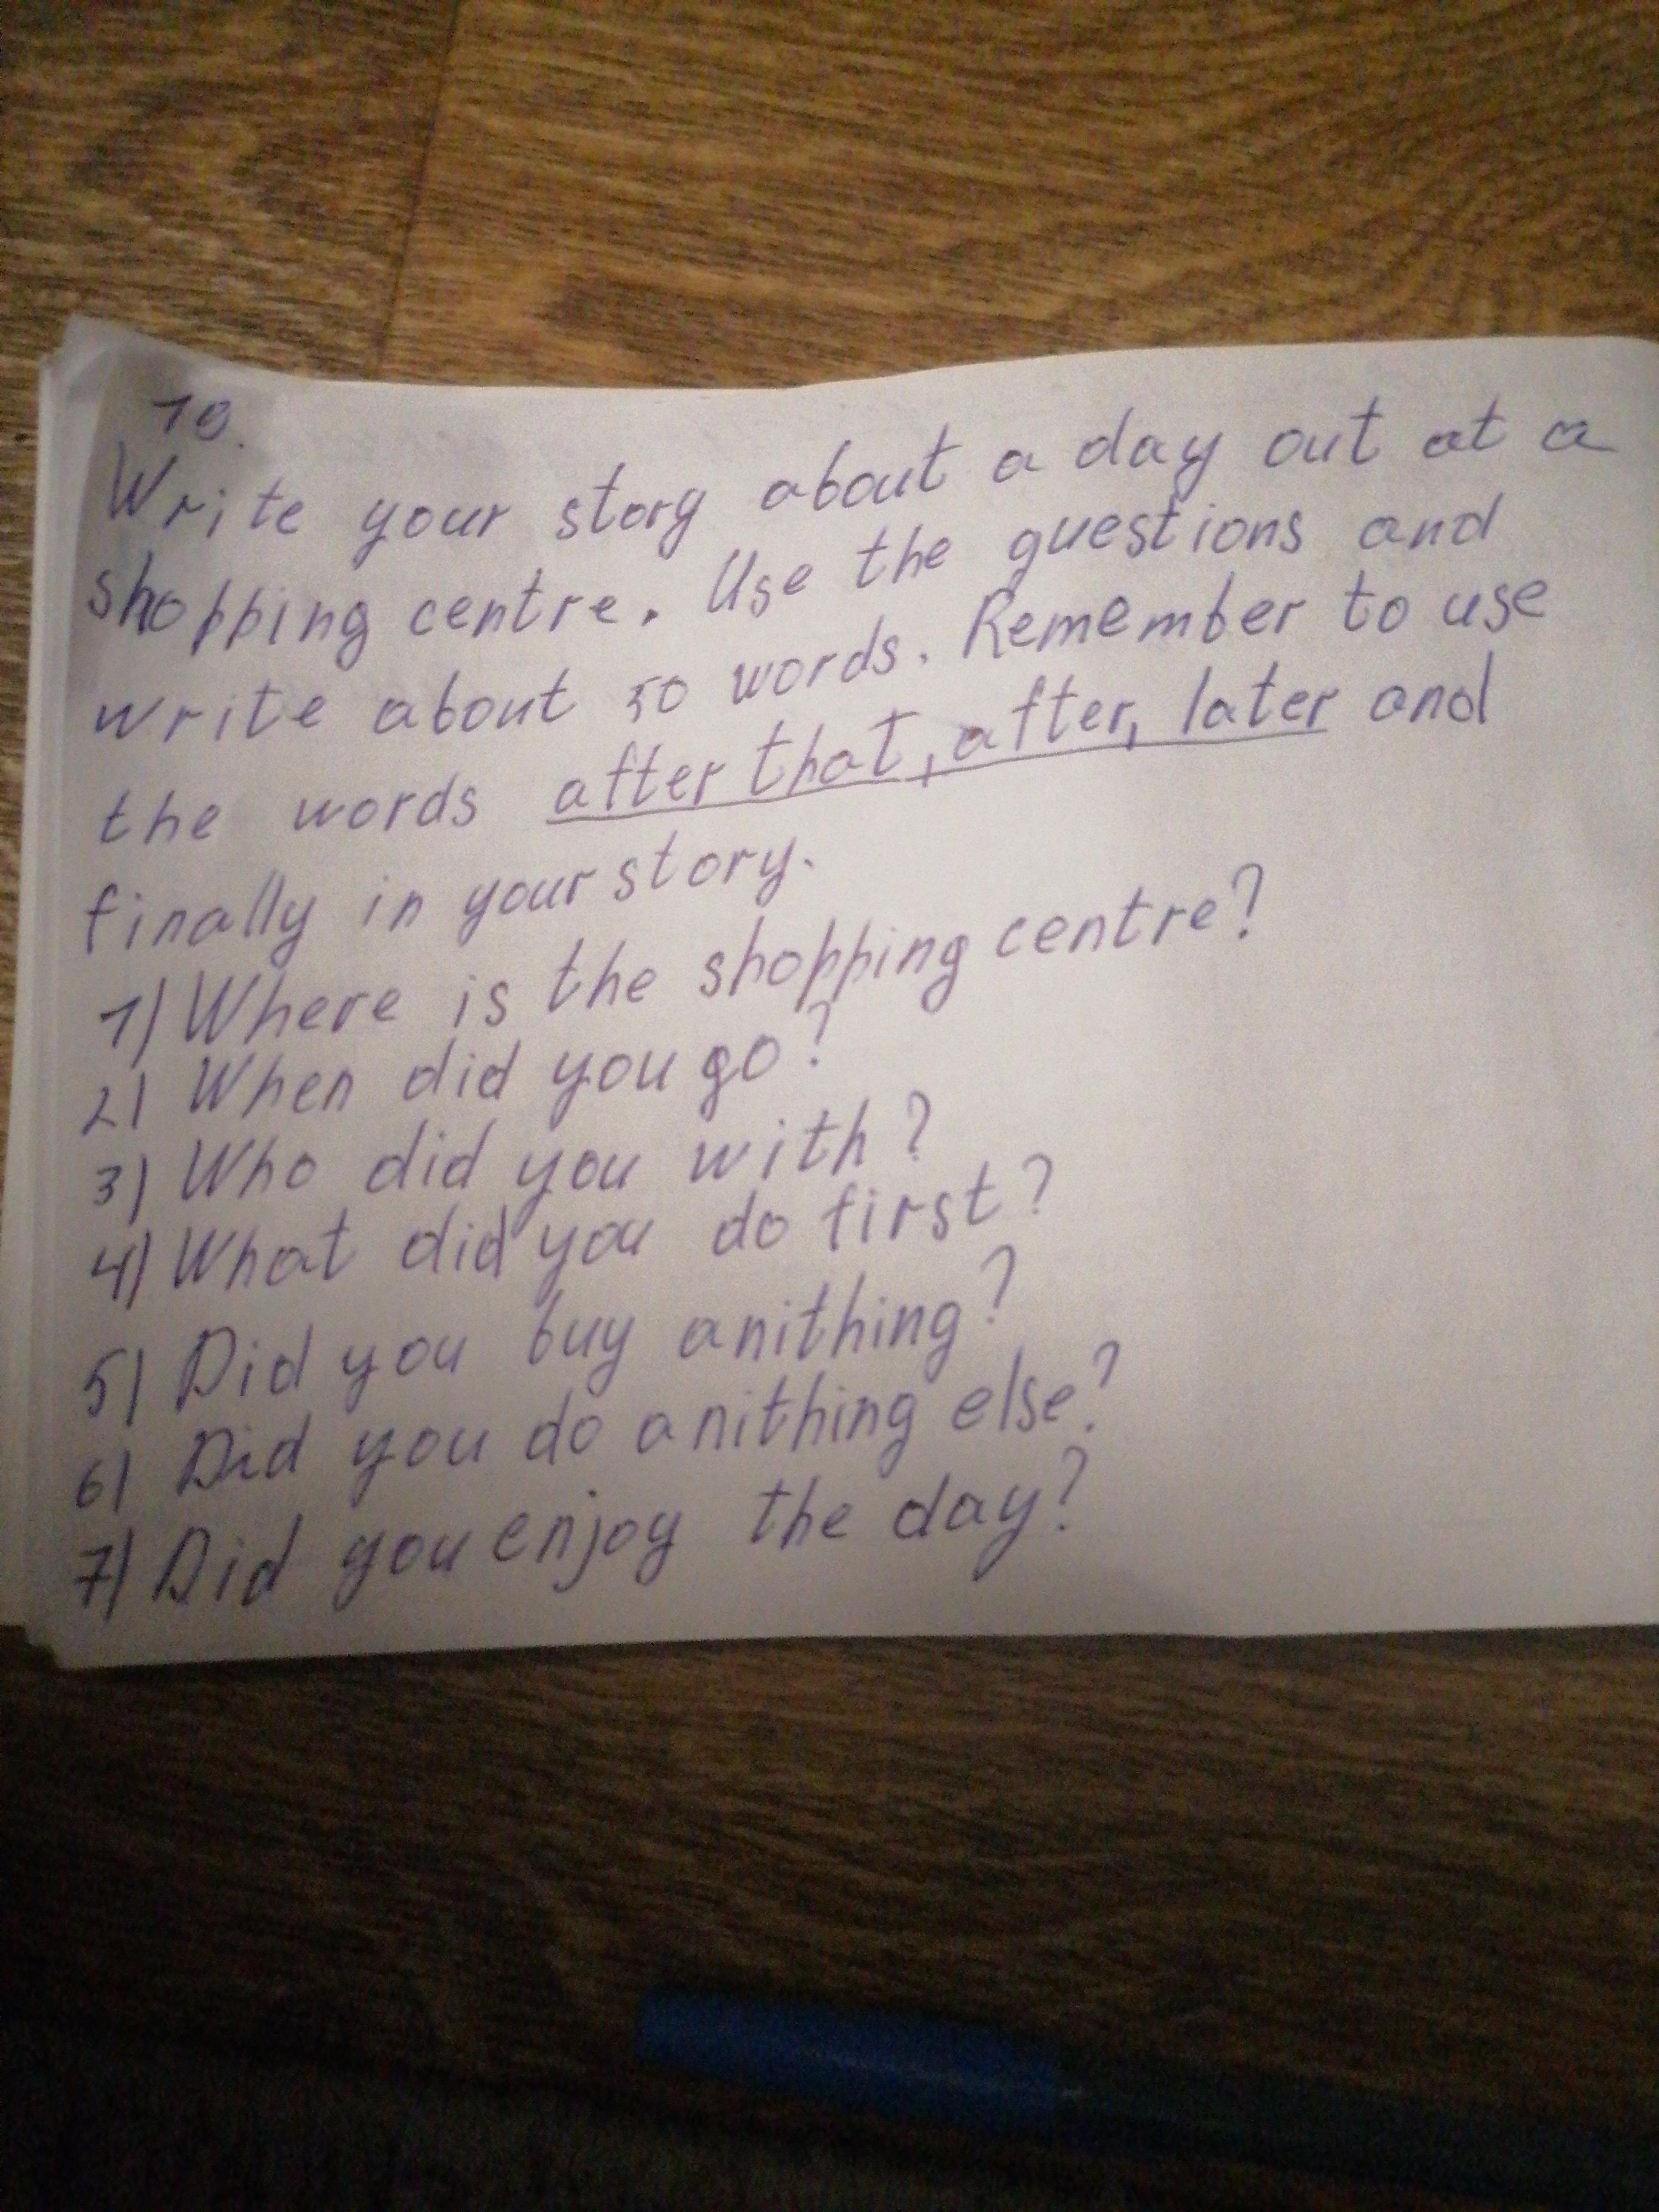 10.
Write your story about a day out at a
shopping centre. Use the questions and
write about 50 words. Remember to use
the words after that, after, later and
finally in your story.
1) Where is the shopping centre?
2) When did you go?
3) Who did you with?
4) What did you do first?
5) Did you buy anithing?
6) Did you do anithing else?
7) Did you enjoy the day?